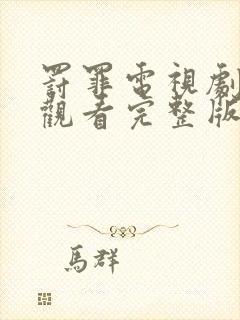 罸罪電視劇
觀看完整版
馬群